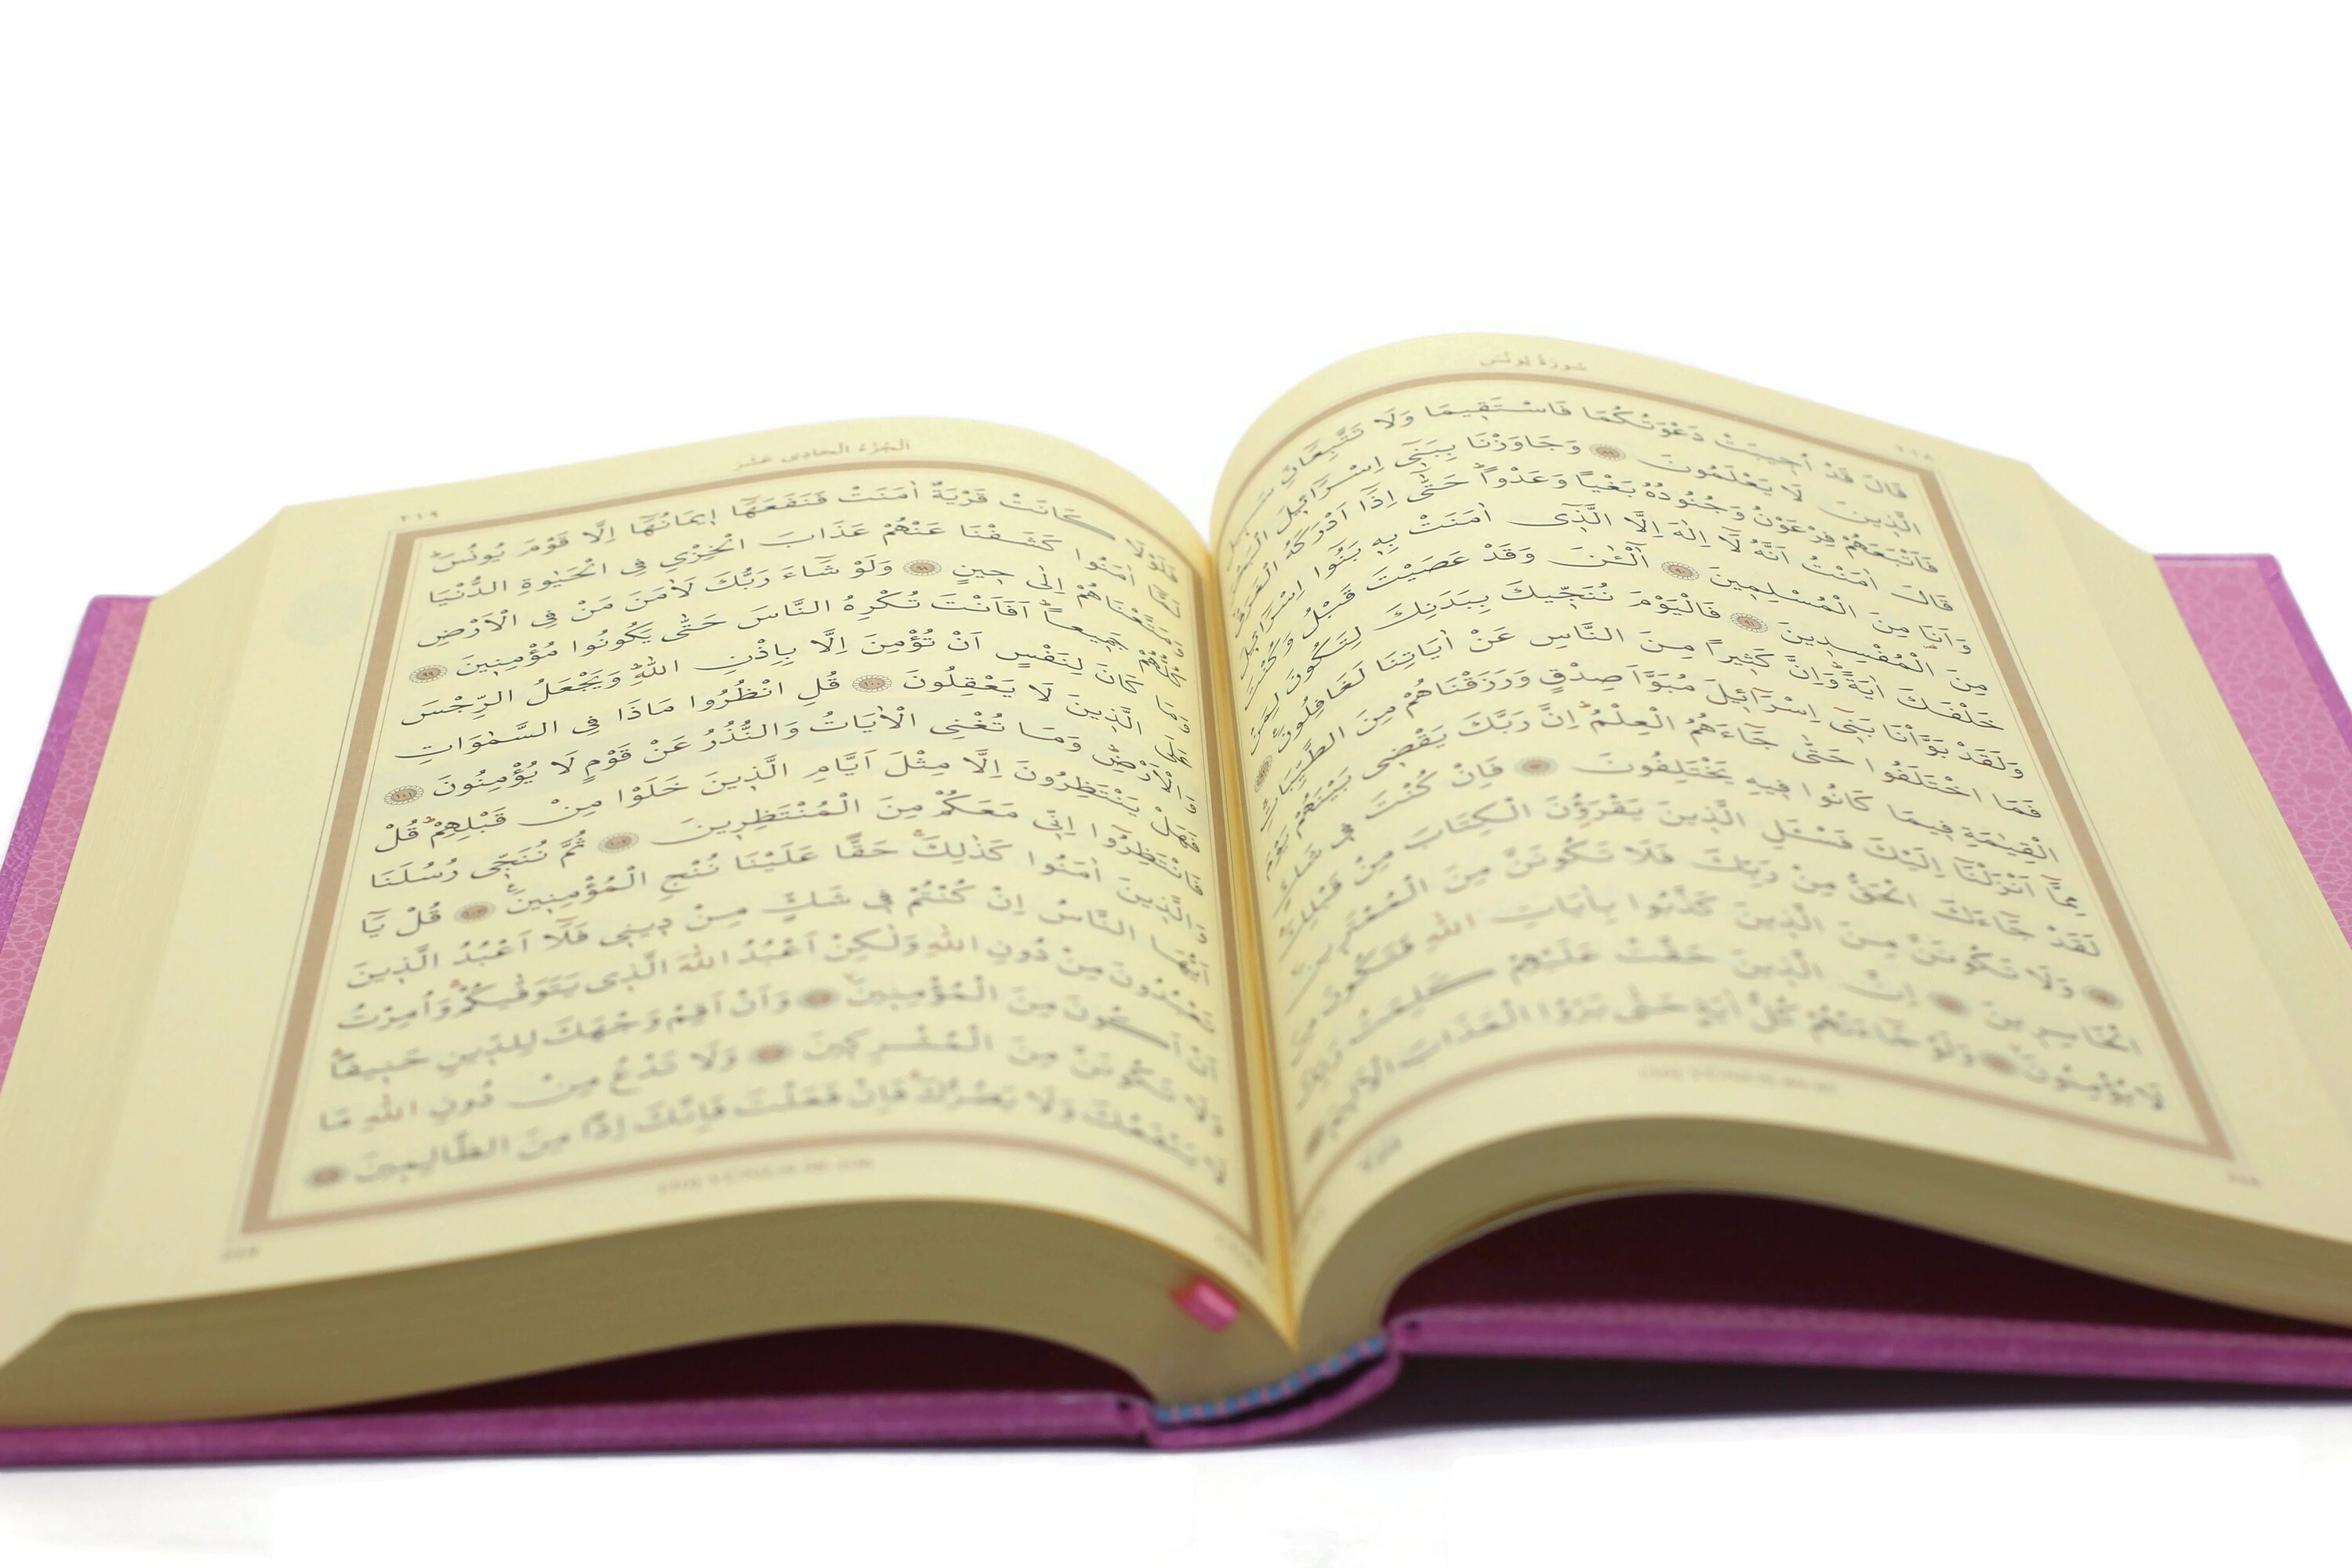 سورة يونس
٢١٨
قَالَ قَدْ اُجِيبَتْ دَعْوَتُكُمَا فَاسْتَقِيمَا وَلَا تَتَّبِعَانِّ سَبِيلَ
الَّذِينَ لَا يَعْلَمُونَ ﴿٨٩﴾ وَجَاوَزْنَا بِبَنِٓي اِسْرَٓائِيلَ الْبَحْرَ
فَاَتْبَعَهُمْ فِرْعَوْنُ وَجُنُودُهُ بَغْيًا وَعَدْوًاۜ حَتّٰٓى اِذَٓا اَدْرَكَهُ الْغَرَقُ
قَالَ اٰمَنْتُ اَنَّهُ لَٓا اِلٰهَ اِلَّا الَّذِٓي اٰمَنَتْ بِهِ بَنُٓوا اِسْرَٓائِيلَ
وَاَنَا۬ مِنَ الْمُسْلِمِينَ ﴿٩٠﴾ آٰلْـٰٔنَ وَقَدْ عَصَيْتَ قَبْلُ وَكُنْتَ
مِنَ الْمُفْسِدِينَ ﴿٩١﴾ فَالْيَوْمَ نُنَجِّيكَ بِبَدَنِكَ لِتَكُونَ لِمَنْ
خَلْفَكَ اٰيَةًۜ وَاِنَّ كَثِيرًا مِنَ النَّاسِ عَنْ اٰيَاتِنَا لَغَافِلُونَ۟
وَلَقَدْ بَوَّأْنَا بَنِٓي اِسْرَٓائِيلَ مُبَوَّاَ صِدْقٍ وَرَزَقْنَاهُمْ مِنَ الطَّيِّبَاتِ
فَمَا اخْتَلَفُوا حَتّٰى جَٓاءَهُمُ الْعِلْمُۜ اِنَّ رَبَّكَ يَقْضِي بَيْنَهُمْ يَوْمَ
الْقِيٰمَةِ فِيمَا كَانُوا فِيهِ يَخْتَلِفُونَ فَاِنْ كُنْتَ فِي شَكٍّ
مِمَّٓا اَنْزَلْنَٓا اِلَيْكَ فَسْـَٔلِ الَّذِينَ يَقْرَؤُ۫نَ الْكِتَابَ مِنْ قَبْلِكَۚ
لَقَدْ جَٓاءَكَ الْحَقُّ مِنْ رَبِّكَ فَلَا تَكُونَنَّ مِنَ الْمُمْتَرِينَ
وَلَا تَكُونَنَّ مِنَ الَّذِينَ كَذَّبُوا بِاٰيَاتِ اللّٰهِ فَتَكُونَ مِنَ
الْخَاسِرِينَ اِنَّ الَّذِينَ حَقَّتْ عَلَيْهِمْ كَلِمَتُ رَبِّكَ
لَا يُؤْمِنُونَ وَلَوْ جَٓاءَتْهُمْ كُلُّ اٰيَةٍ حَتّٰى يَرَوُا الْعَذَابَ الْاَلِيمَ
الجزء الحادي عشر
٢١٩
فَلَوْلَا كَانَتْ قَرْيَةٌ اٰمَنَتْ فَنَفَعَهَٓا اِيمَانُهَٓا اِلَّا قَوْمَ يُونُسَۜ
لَمَّٓا اٰمَنُوا كَشَفْنَا عَنْهُمْ عَذَابَ الْخِزْيِ فِي الْحَيٰوةِ الدُّنْيَا
وَمَتَّعْنَاهُمْ اِلٰى حِينٍ ﴿٩٨﴾ وَلَوْ شَٓاءَ رَبُّكَ لَاٰمَنَ مَنْ فِي الْاَرْضِ
كُلُّهُمْ جَمِيعًاۜ اَفَاَنْتَ تُكْرِهُ النَّاسَ حَتّٰى يَكُونُوا مُؤْمِنِينَ ﴿٩٩﴾
وَمَا كَانَ لِنَفْسٍ اَنْ تُؤْمِنَ اِلَّا بِاِذْنِ اللّٰهِۜ وَيَجْعَلُ الرِّجْسَ
عَلَى الَّذِينَ لَا يَعْقِلُونَ ﴿١٠٠﴾ قُلِ انْظُرُوا مَاذَا فِي السَّمٰوَاتِ
وَالْاَرْضِۜ وَمَا تُغْنِي الْاٰيَاتُ وَالنُّذُرُ عَنْ قَوْمٍ لَا يُؤْمِنُونَ ﴿١٠١﴾
فَهَلْ يَنْتَظِرُونَ اِلَّا مِثْلَ اَيَّامِ الَّذِينَ خَلَوْا مِنْ قَبْلِهِمْۜ قُلْ
فَانْتَظِرُٓوا اِنِّي مَعَكُمْ مِنَ الْمُنْتَظِرِينَ ﴿١٠٢﴾ ثُمَّ نُنَجِّي رُسُلَنَا
وَالَّذِينَ اٰمَنُوا كَذٰلِكَۚ حَقًّا عَلَيْنَا نُنْجِ الْمُؤْمِنِينَ۟ قُلْ يَٓا
اَيُّهَا النَّاسُ اِنْ كُنْتُمْ فِي شَكٍّ مِنْ دِينِي فَلَٓا اَعْبُدُ الَّذِينَ
تَعْبُدُونَ مِنْ دُونِ اللّٰهِ وَلٰكِنْ اَعْبُدُ اللّٰهَ الَّذِي يَتَوَفّٰيكُمْۚ وَاُمِرْتُ
اَنْ اَكُونَ مِنَ الْمُؤْمِنِينَۙ وَاَنْ اَقِمْ وَجْهَكَ لِلدِّينِ حَنِيفًاۚ
وَلَا تَكُونَنَّ مِنَ الْمُشْرِكِينَ وَلَا تَدْعُ مِنْ دُونِ اللّٰهِ مَا
لَا يَنْفَعُكَ وَلَا يَضُرُّكَۚ فَاِنْ فَعَلْتَ فَاِنَّكَ اِذًا مِنَ الظَّالِمِينَ